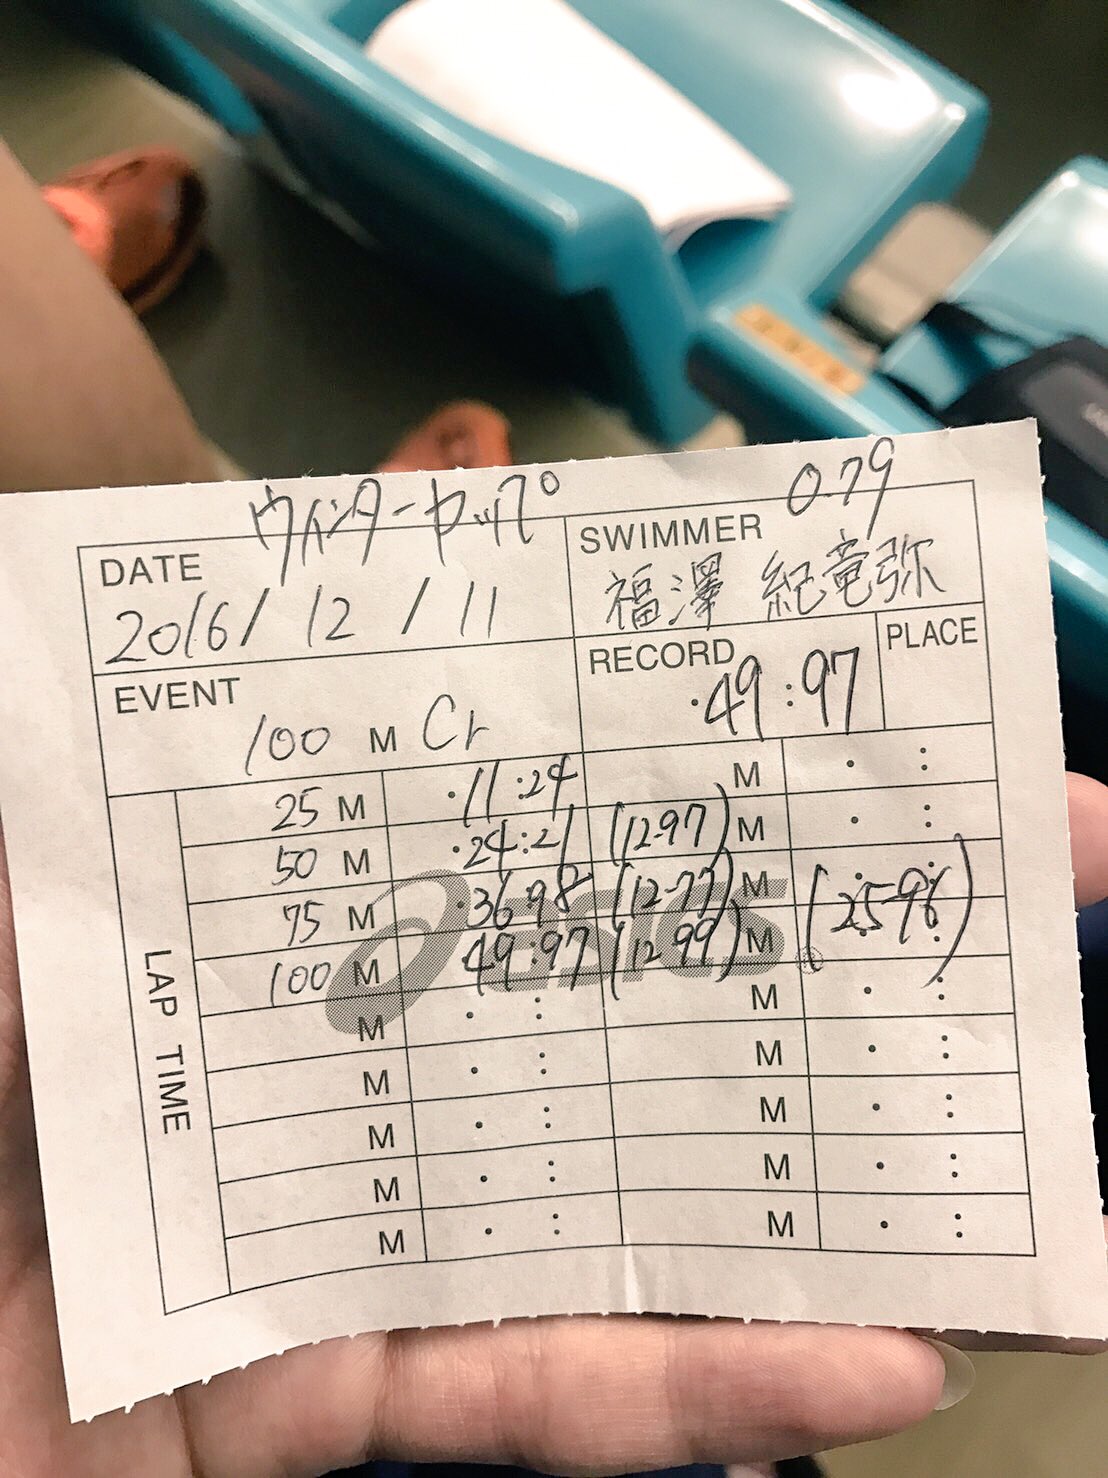 ウィンターカップ 0.79
DATE SWIMMER
2016/12/11 福澤 紀竜弥
EVENT RECORD PLACE
100 M Cr ・49:97
LAP TIME
25 M ・11:24 M ・ :
50 M ・24:21 (12-97) M ・ :
75 M ・36:98 (12-77) M
100 M ・49:97 (12 99) M (25-96)
asics
M ・ : M ・ :
M ・ : M ・ :
M ・ : M ・ :
M ・ : M ・ :
M ・ : M ・ :